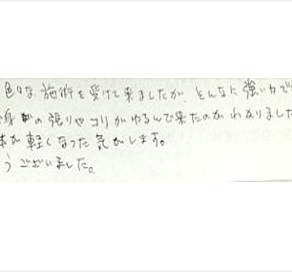 色々な施術を受けて来ましたが、そんなに強い力で
身体の張りやコリがゆるんで来たのがわかりました
体が軽くなった気がします。
うございました。